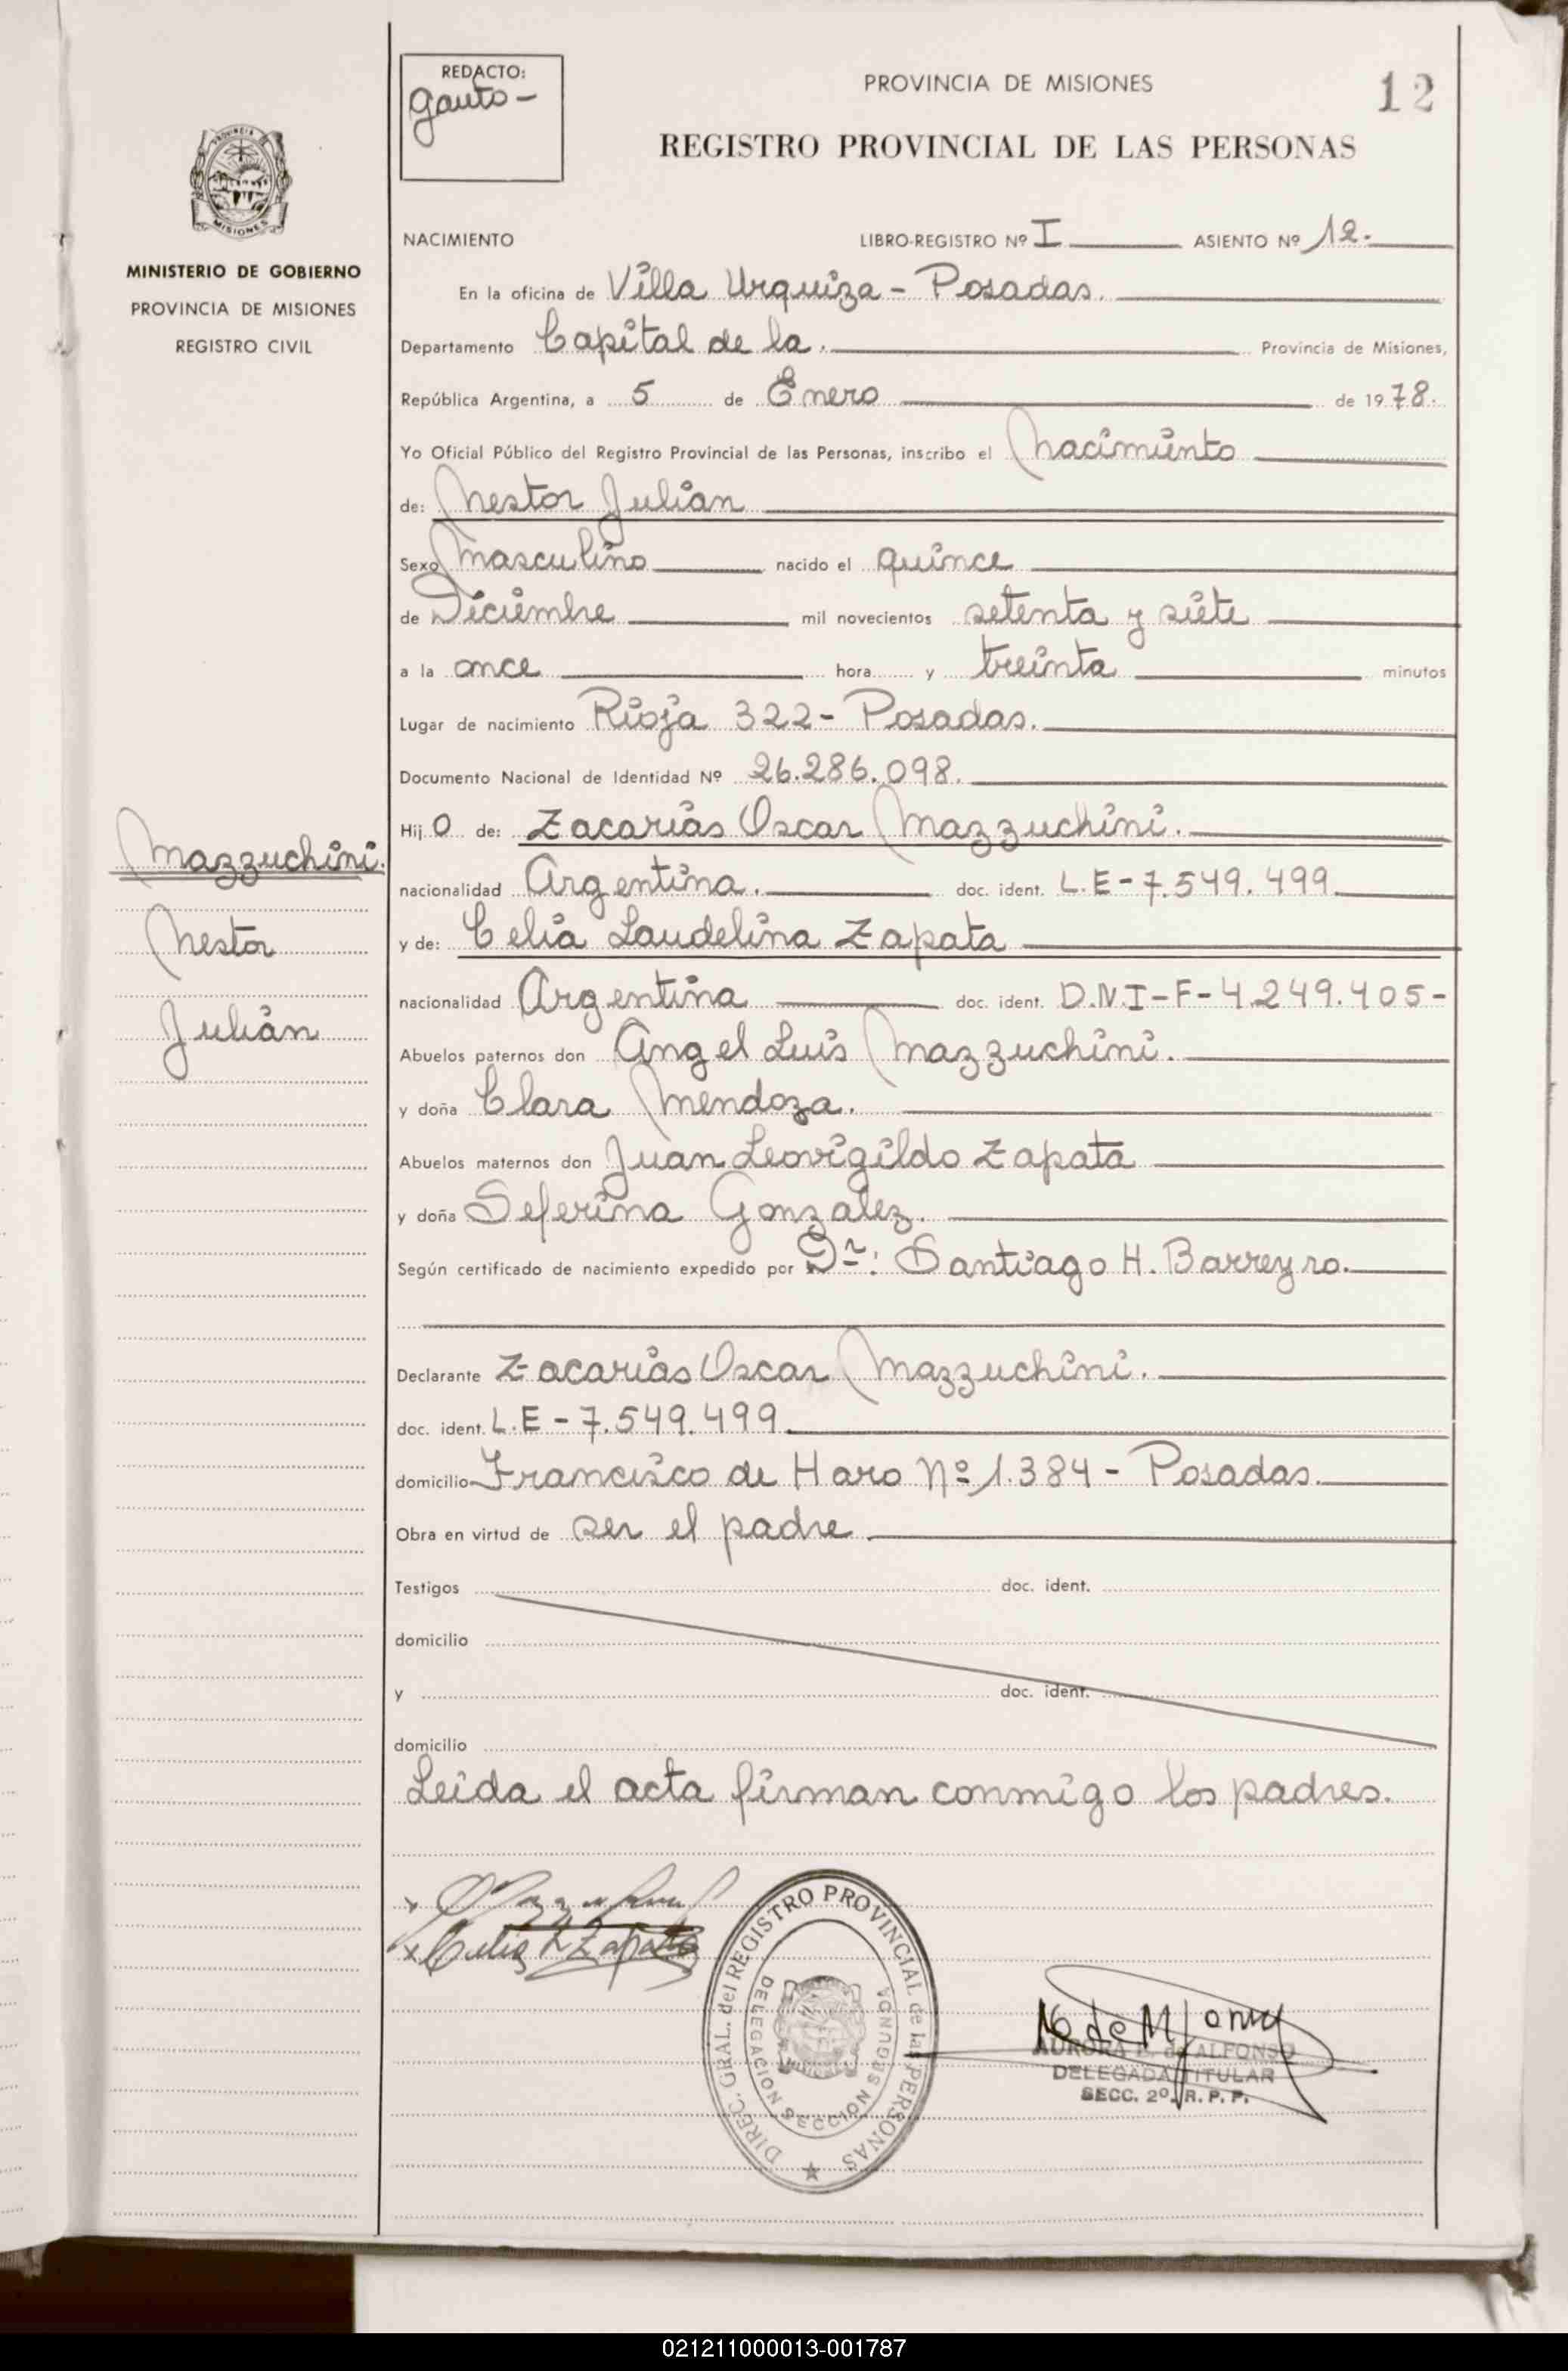 REDACTO:
Gauto-
PROVINCIA DE MISIONES
12
REGISTRO PROVINCIAL DE LAS PERSONAS
MISIONES
MINISTERIO DE GOBIERNO
PROVINCIA DE MISIONES
REGISTRO CIVIL
NACIMIENTO LIBRO-REGISTRO Nº I ASIENTO Nº 12.
En la oficina de Villa Urquiza - Posadas.
Departamento Capital de la. Provincia de Misiones,
República Argentina, a 5 de Enero de 1978.
Yo Oficial Público del Registro Provincial de las Personas, inscribo el Nacimiento
de: Nestor Julian
Sexo Masculino nacido el quince
de Diciembre mil novecientos setenta y siete
a la once hora y treinta minutos
Lugar de nacimiento Rioja 322- Posadas.
Documento Nacional de Identidad Nº 26.286.098.
Hijo de: Zacarias Oscar Mazzuchini.
nacionalidad Argentina. doc. ident. L.E-7.549.499
y de: Celia Laudelina Zapata
nacionalidad Argentina doc. ident. D.N.I-F-4.249.405-
Abuelos paternos don Angel Luis Mazzuchini.
y doña Clara Mendoza.
Abuelos maternos don Juan Leovigildo Zapata
y doña Seferina Gonzalez.
Según certificado de nacimiento expedido por Dr: Santiago H. Barreyro.
Declarante Zacarias Oscar Mazzuchini.
doc. ident. L.E-7.549.499
domicilio Francisco de Haro Nº 1.384 - Posadas.
Obra en virtud de ser el padre
Testigos doc. ident.
domicilio
y doc. ident.
domicilio
Leida el acta firman conmigo los padres.
Mazzuchini.
Nestor
Julián
Celia L Zapata
DIREC. GRAL. del REGISTRO PROVINCIAL de las PERSONAS
DELEGACION SECCION SEGUNDA
AURORA de ALFONSO
DELEGADA TITULAR
SECC. 2º R. P. P.
021211000013-001787